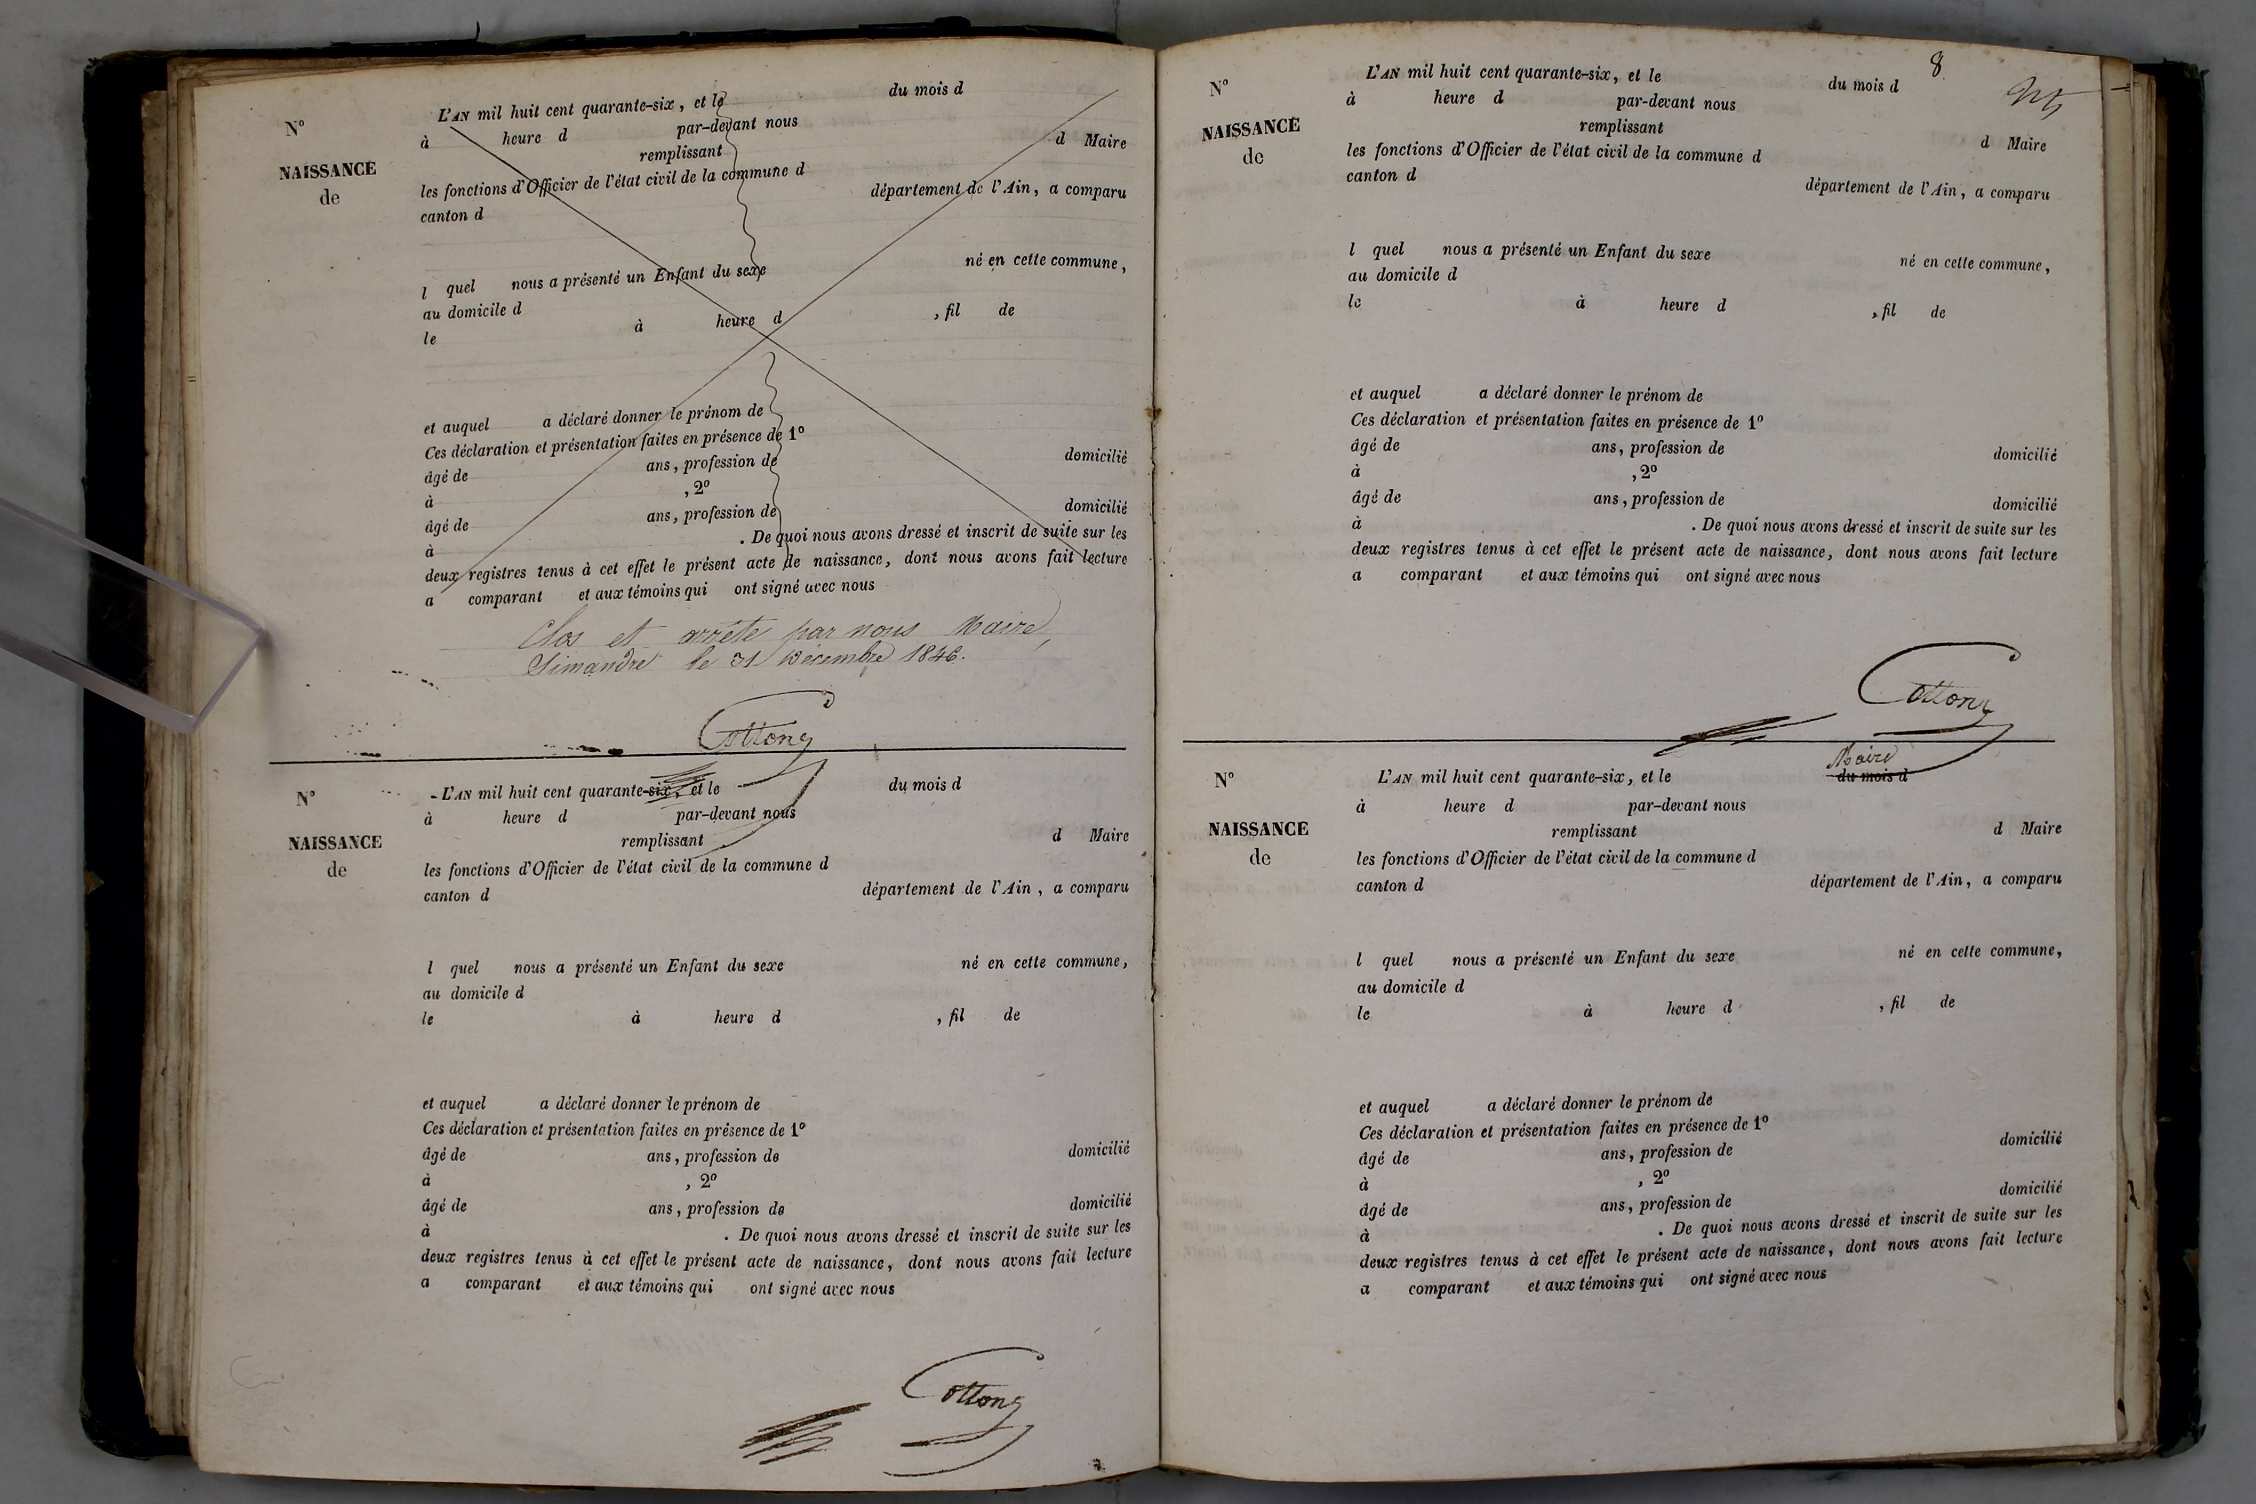 N° L'AN mil huit cent quarante-six, et le du mois d
à heure d par-devant nous
remplissant d Maire
NAISSANCE
de
les fonctions d'Officier de l'état civil de la commune d
canton d département de l'Ain, a comparu
l quel nous a présenté un Enfant du sexe né en cette commune,
au domicile d
le à heure d , fil de
et auquel a déclaré donner le prénom de
Ces déclaration et présentation faites en présence de 1°
âgé de ans, profession de domicilié
à , 2°
âgé de ans, profession de domicilié
à . De quoi nous avons dressé et inscrit de suite sur les
deux registres tenus à cet effet le présent acte de naissance, dont nous avons fait lecture
a comparant et aux témoins qui ont signé avec nous
Clos et arrêté par nous Maire,
Simandre le 31 Décembre 1846.
Cottony
N° L'AN mil huit cent quarante-six, et le du mois d
à heure d par-devant nous
remplissant d Maire
NAISSANCE
de
les fonctions d'Officier de l'état civil de la commune d
canton d département de l'Ain, a comparu
l quel nous a présenté un Enfant du sexe né en cette commune,
au domicile d
le à heure d , fil de
et auquel a déclaré donner le prénom de
Ces déclaration et présentation faites en présence de 1°
âgé de ans, profession de domicilié
à , 2°
âgé de ans, profession de domicilié
à . De quoi nous avons dressé et inscrit de suite sur les
deux registres tenus à cet effet le présent acte de naissance, dont nous avons fait lecture
a comparant et aux témoins qui ont signé avec nous
Cottony
8
N° L'AN mil huit cent quarante-six, et le du mois d
à heure d par-devant nous
remplissant d Maire
NAISSANCE
de
les fonctions d'Officier de l'état civil de la commune d
canton d département de l'Ain, a comparu
l quel nous a présenté un Enfant du sexe né en cette commune,
au domicile d
le à heure d , fil de
et auquel a déclaré donner le prénom de
Ces déclaration et présentation faites en présence de 1°
âgé de ans, profession de domicilié
à , 2°
âgé de ans, profession de domicilié
à . De quoi nous avons dressé et inscrit de suite sur les
deux registres tenus à cet effet le présent acte de naissance, dont nous avons fait lecture
a comparant et aux témoins qui ont signé avec nous
Cottony
Maire
N° L'AN mil huit cent quarante-six, et le du mois d
à heure d par-devant nous
remplissant d Maire
NAISSANCE
de
les fonctions d'Officier de l'état civil de la commune d
canton d département de l'Ain, a comparu
l quel nous a présenté un Enfant du sexe né en cette commune,
au domicile d
le à heure d , fil de
et auquel a déclaré donner le prénom de
Ces déclaration et présentation faites en présence de 1°
âgé de ans, profession de domicilié
à , 2°
âgé de ans, profession de domicilié
à . De quoi nous avons dressé et inscrit de suite sur les
deux registres tenus à cet effet le présent acte de naissance, dont nous avons fait lecture
a comparant et aux témoins qui ont signé avec nous